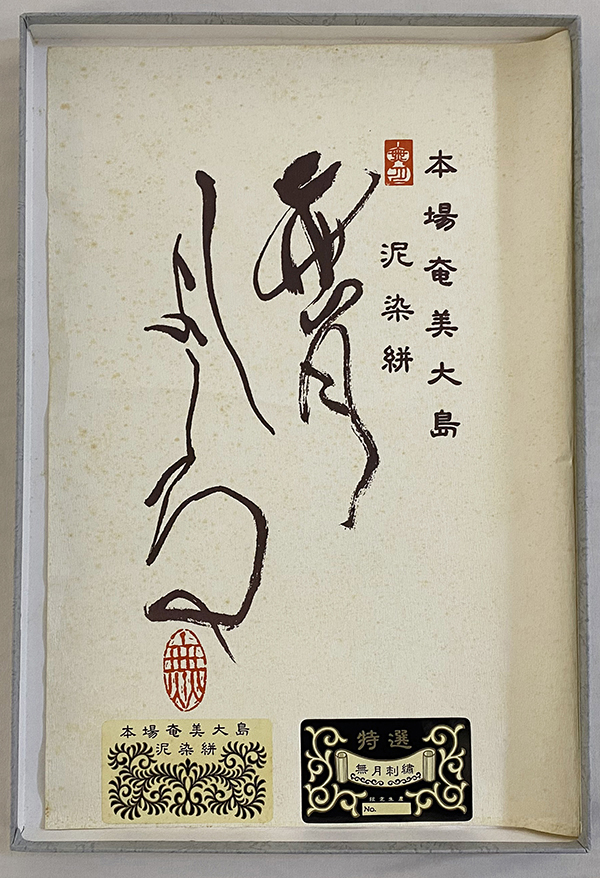 本場奄美大島
泥染絣
無月
無
本場奄美大島
泥染絣
特選
無月刺繍
No.